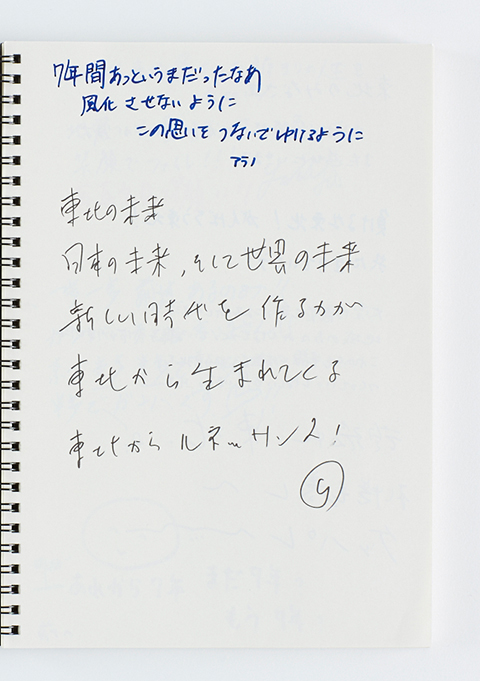 7年間あっというまだったなあ
風化させないように
この思いをつないでゆけるように
アラノ
東北の未来
日本の未来、そして世界の未来
新しい時代を作る力が
東北から生まれてくる
東北からルネッサンス!
G